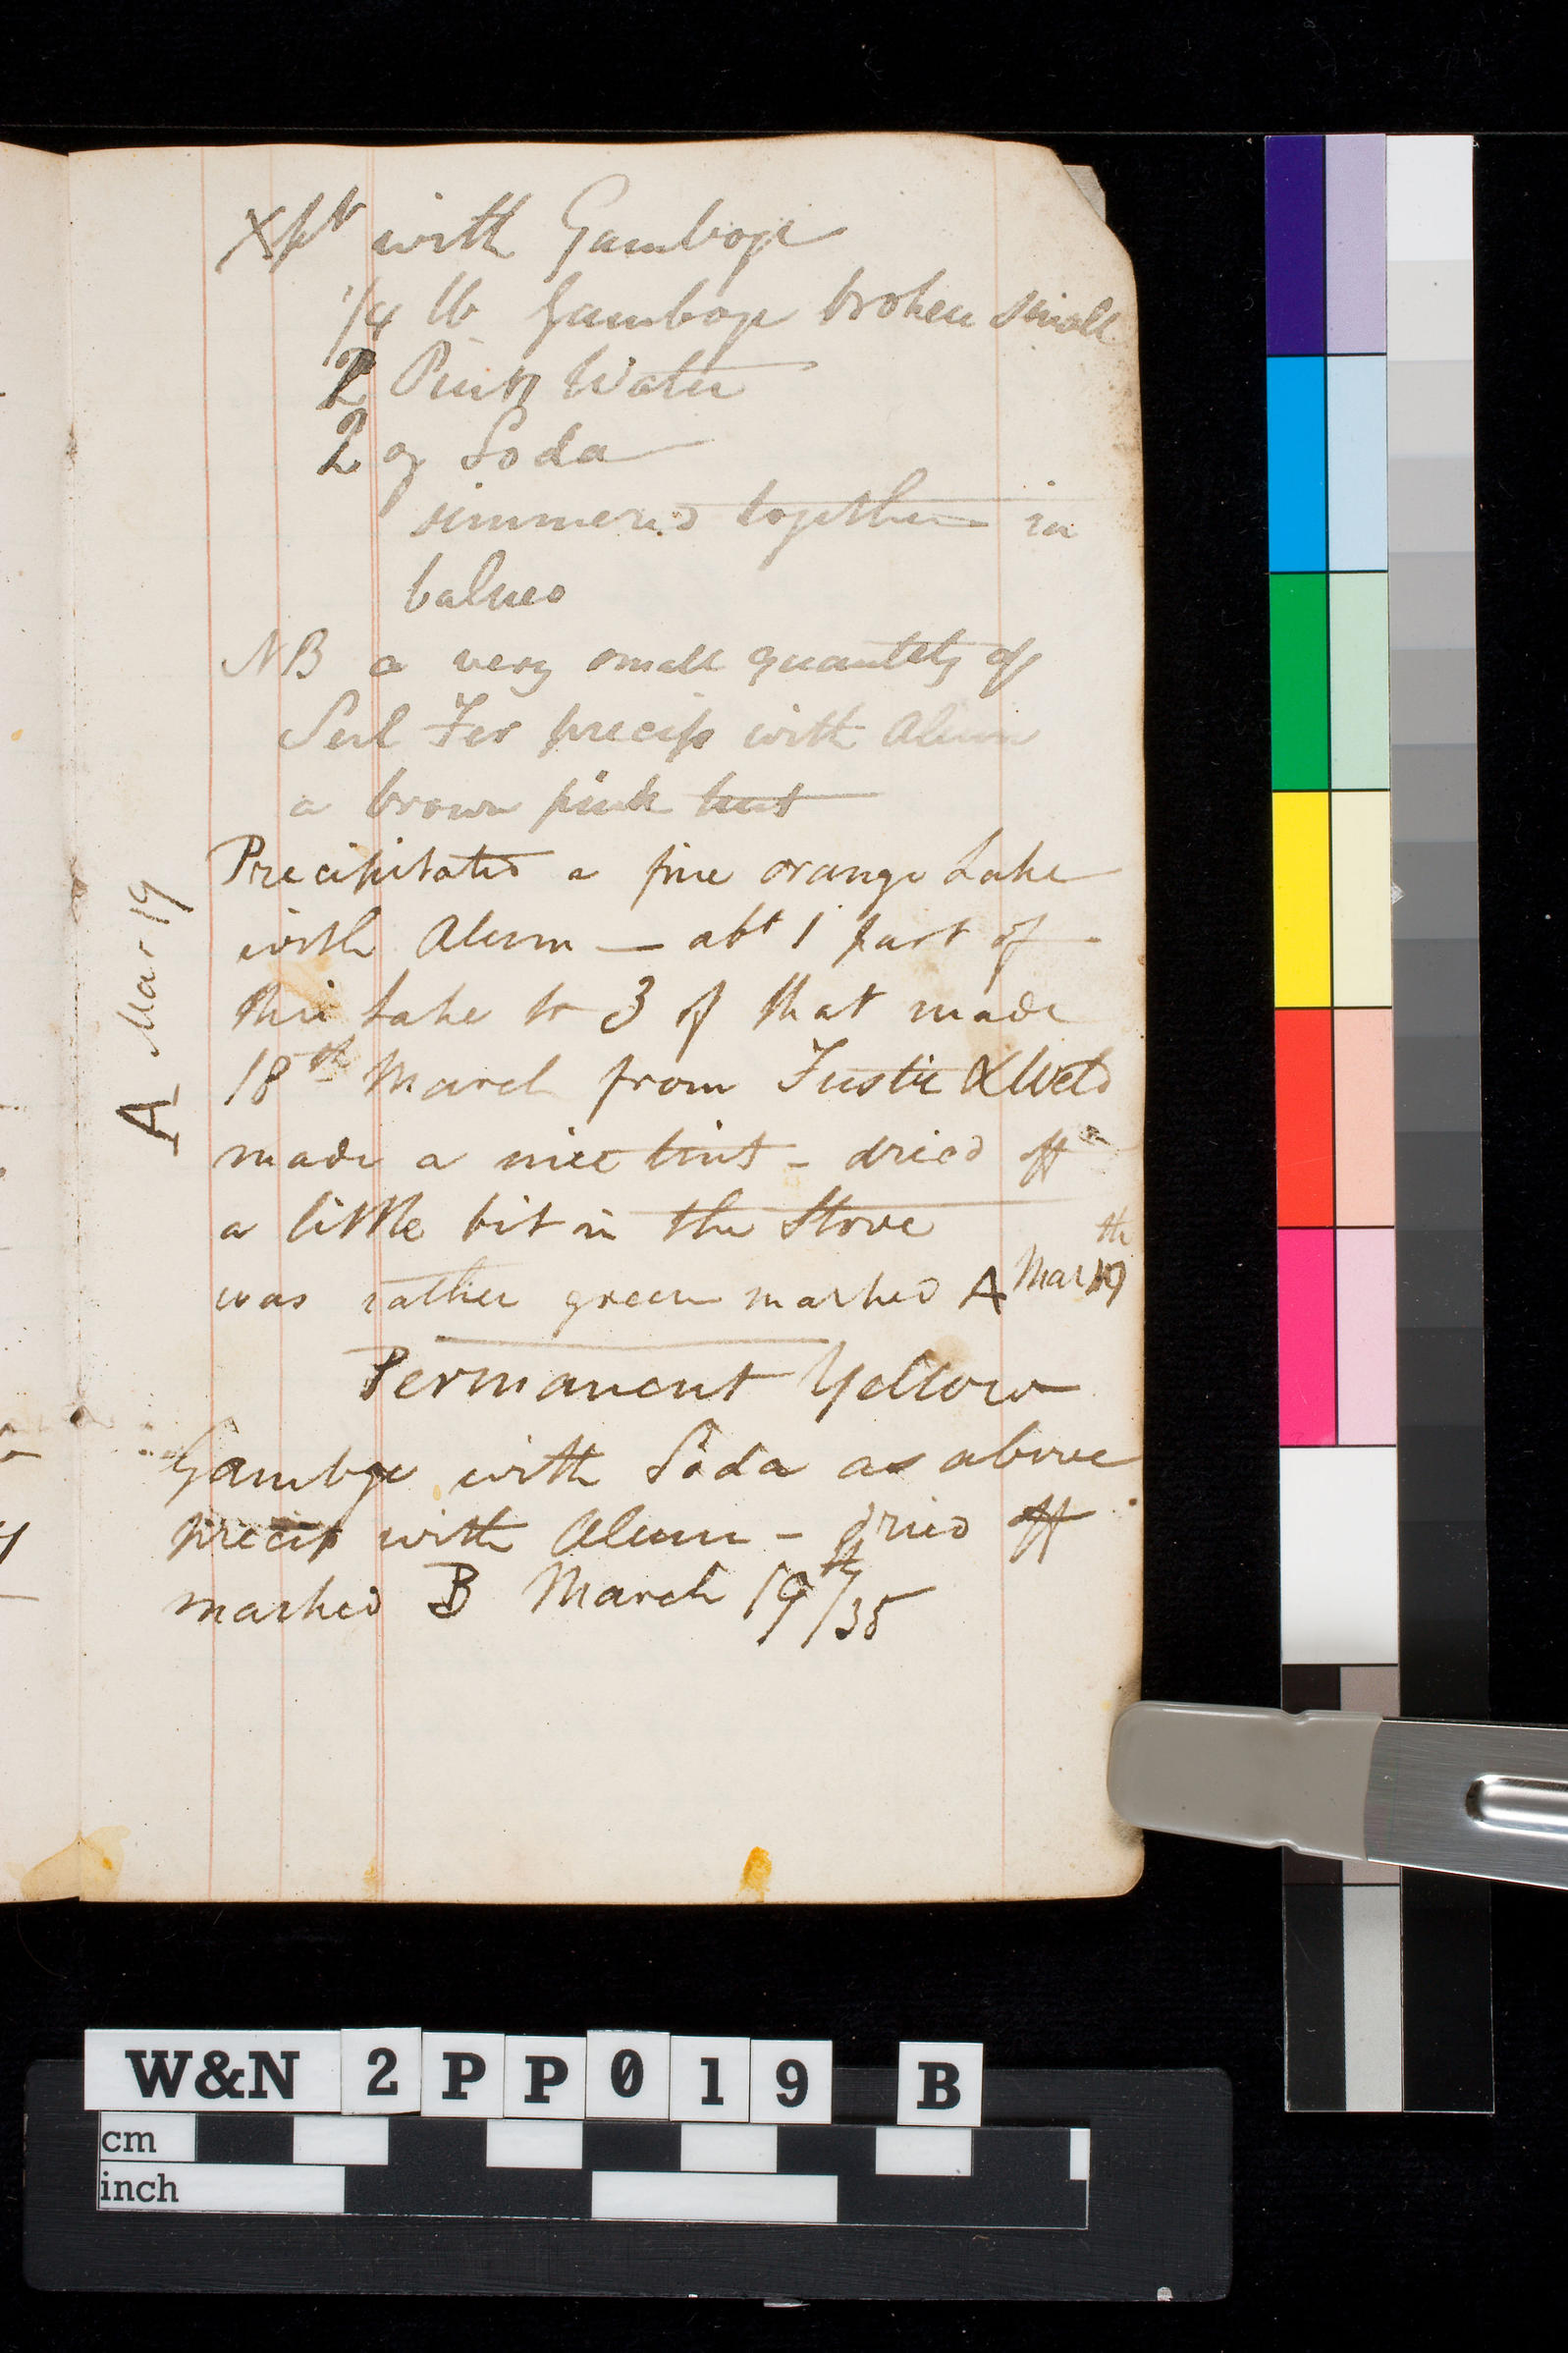 Xpt with Gamboge
1/4 lb Gamboge broken small
2 Pints Water
2 oz Soda
simmered together in
balneo
NB a very small quantity of
Sul Fer precip with Alum
a brown pink tint
Precipitated a fine orange Lake
with Alum — abt 1 part of
this Lake to 3 of that made
18th March from Fustic & Weld
made a nice tint – dried off
a little bit in the Stove
was rather green marked A Mar 19th
A Mar 19
Permanent Yellow
Gamboge with Soda as above
precip with Alum – dried off
marked B March 19th/35
W&N 2PP019 B
cm
inch